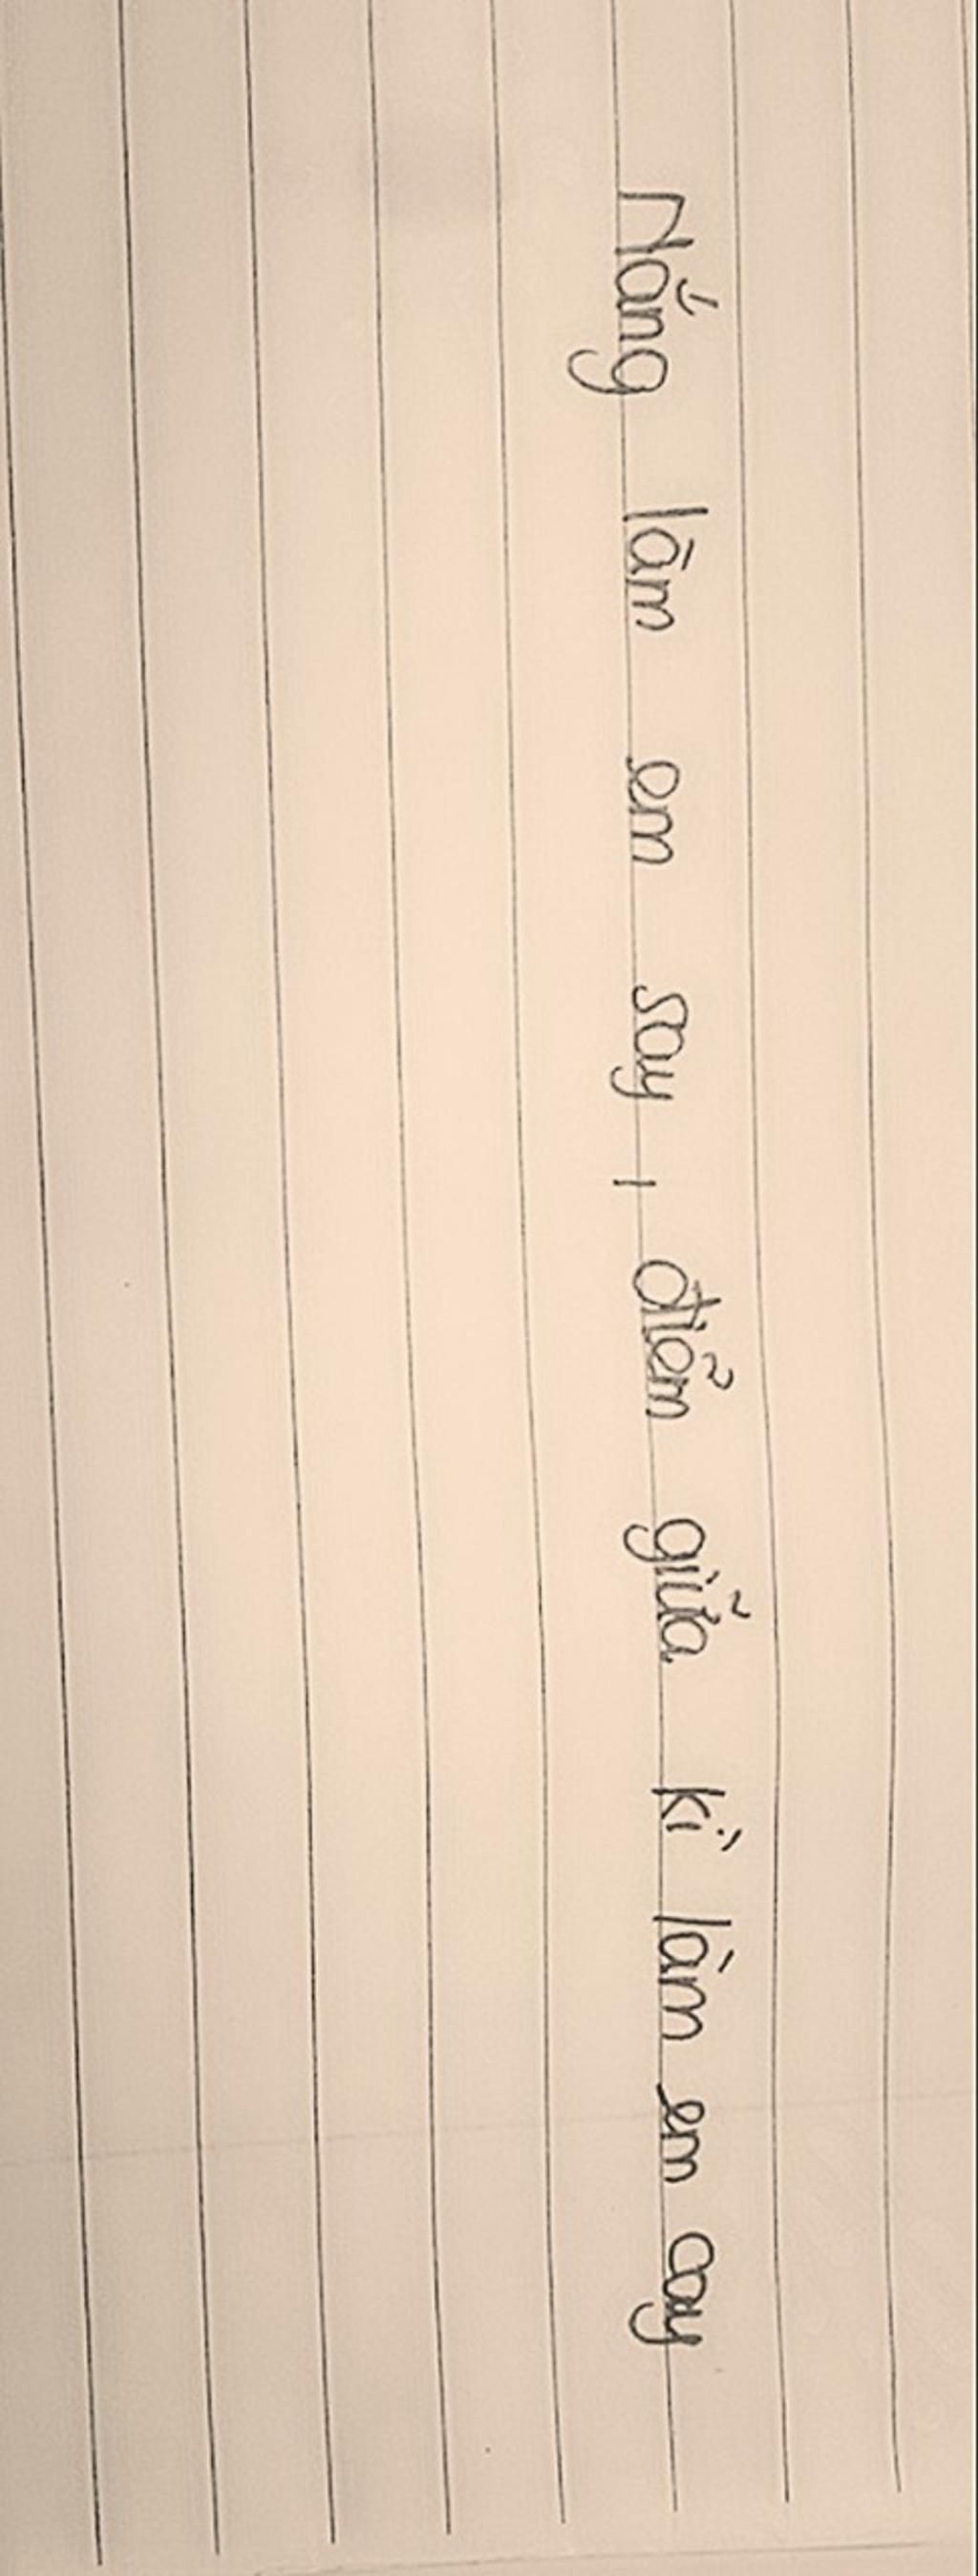 Nắng làm em say, điểm giữa kì làm em cay